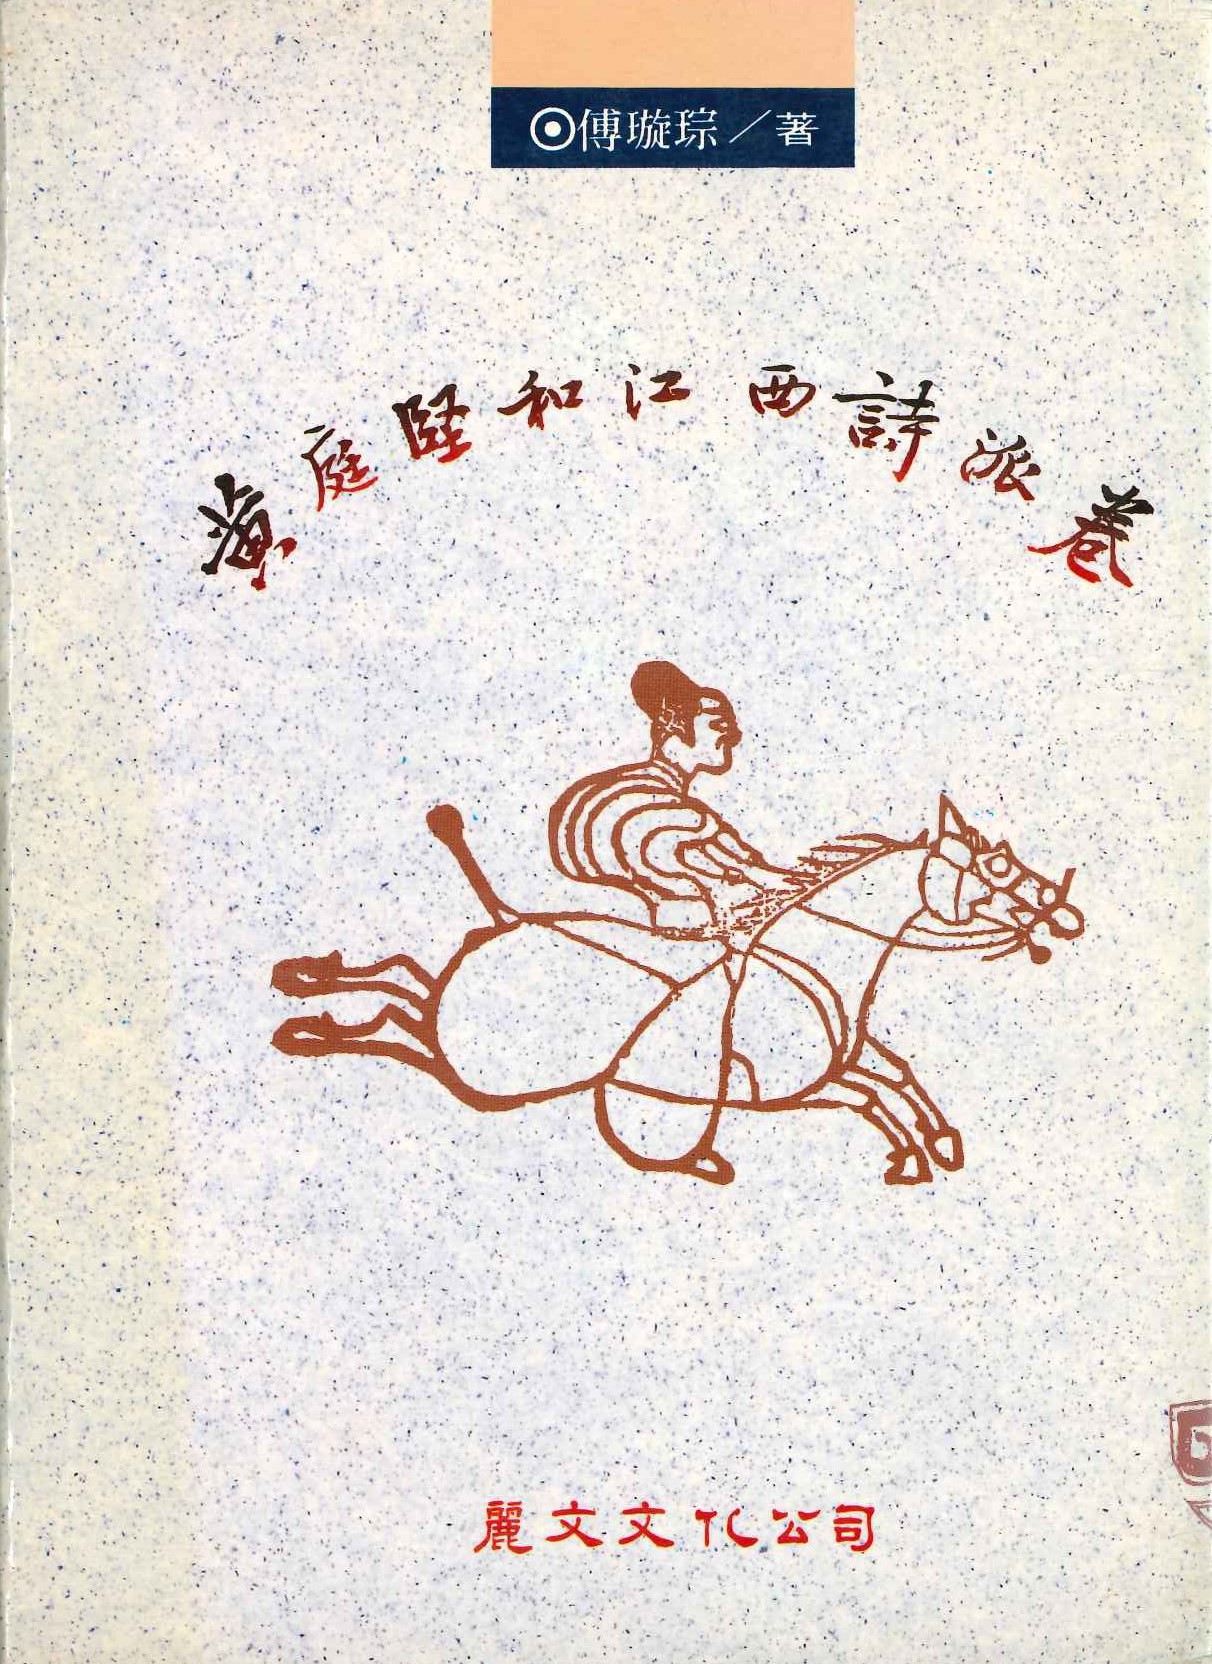 ⊙傅璇琮／著
黃庭堅和江西詩派卷
麗文文化公司